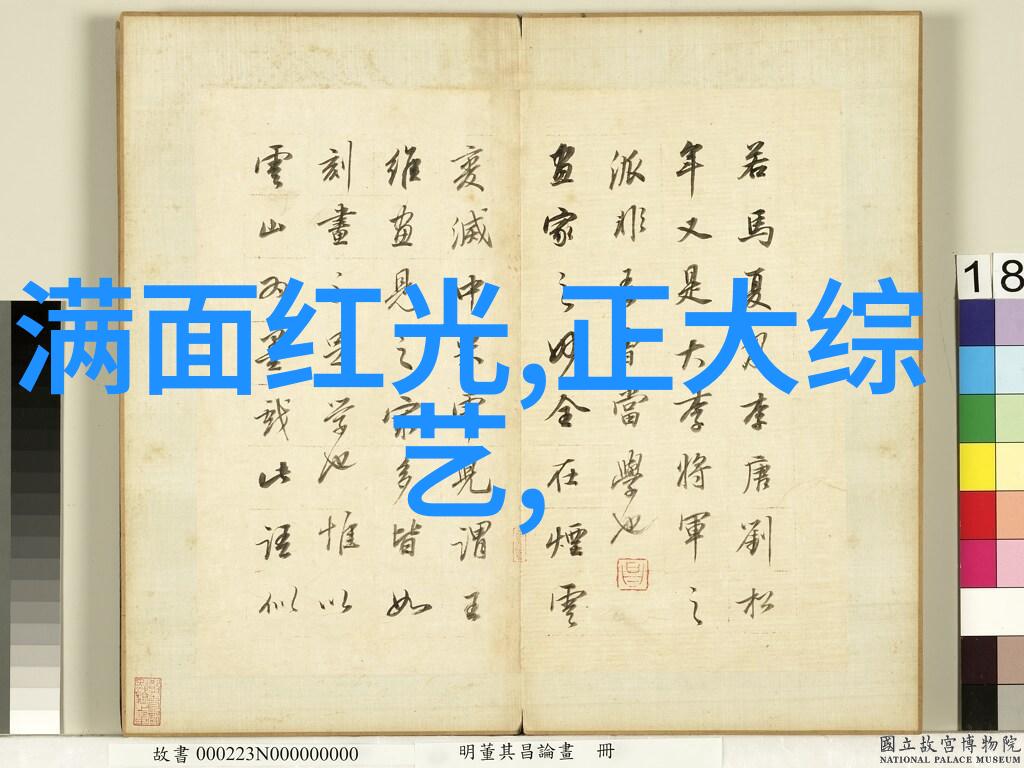 若馬夏李唐劉松
年又是大李將軍之
派非當學也
畫家之妙全在煙雲
變滅中謂王
維畫見之多皆如
刻畫學也惟以
雲山墨戲此語似
满面红光,正大综
艺,
18
故書 000223N000000000
明董其昌論畫 冊
國立故宮博物院
NATIONAL PALACE MUSEUM